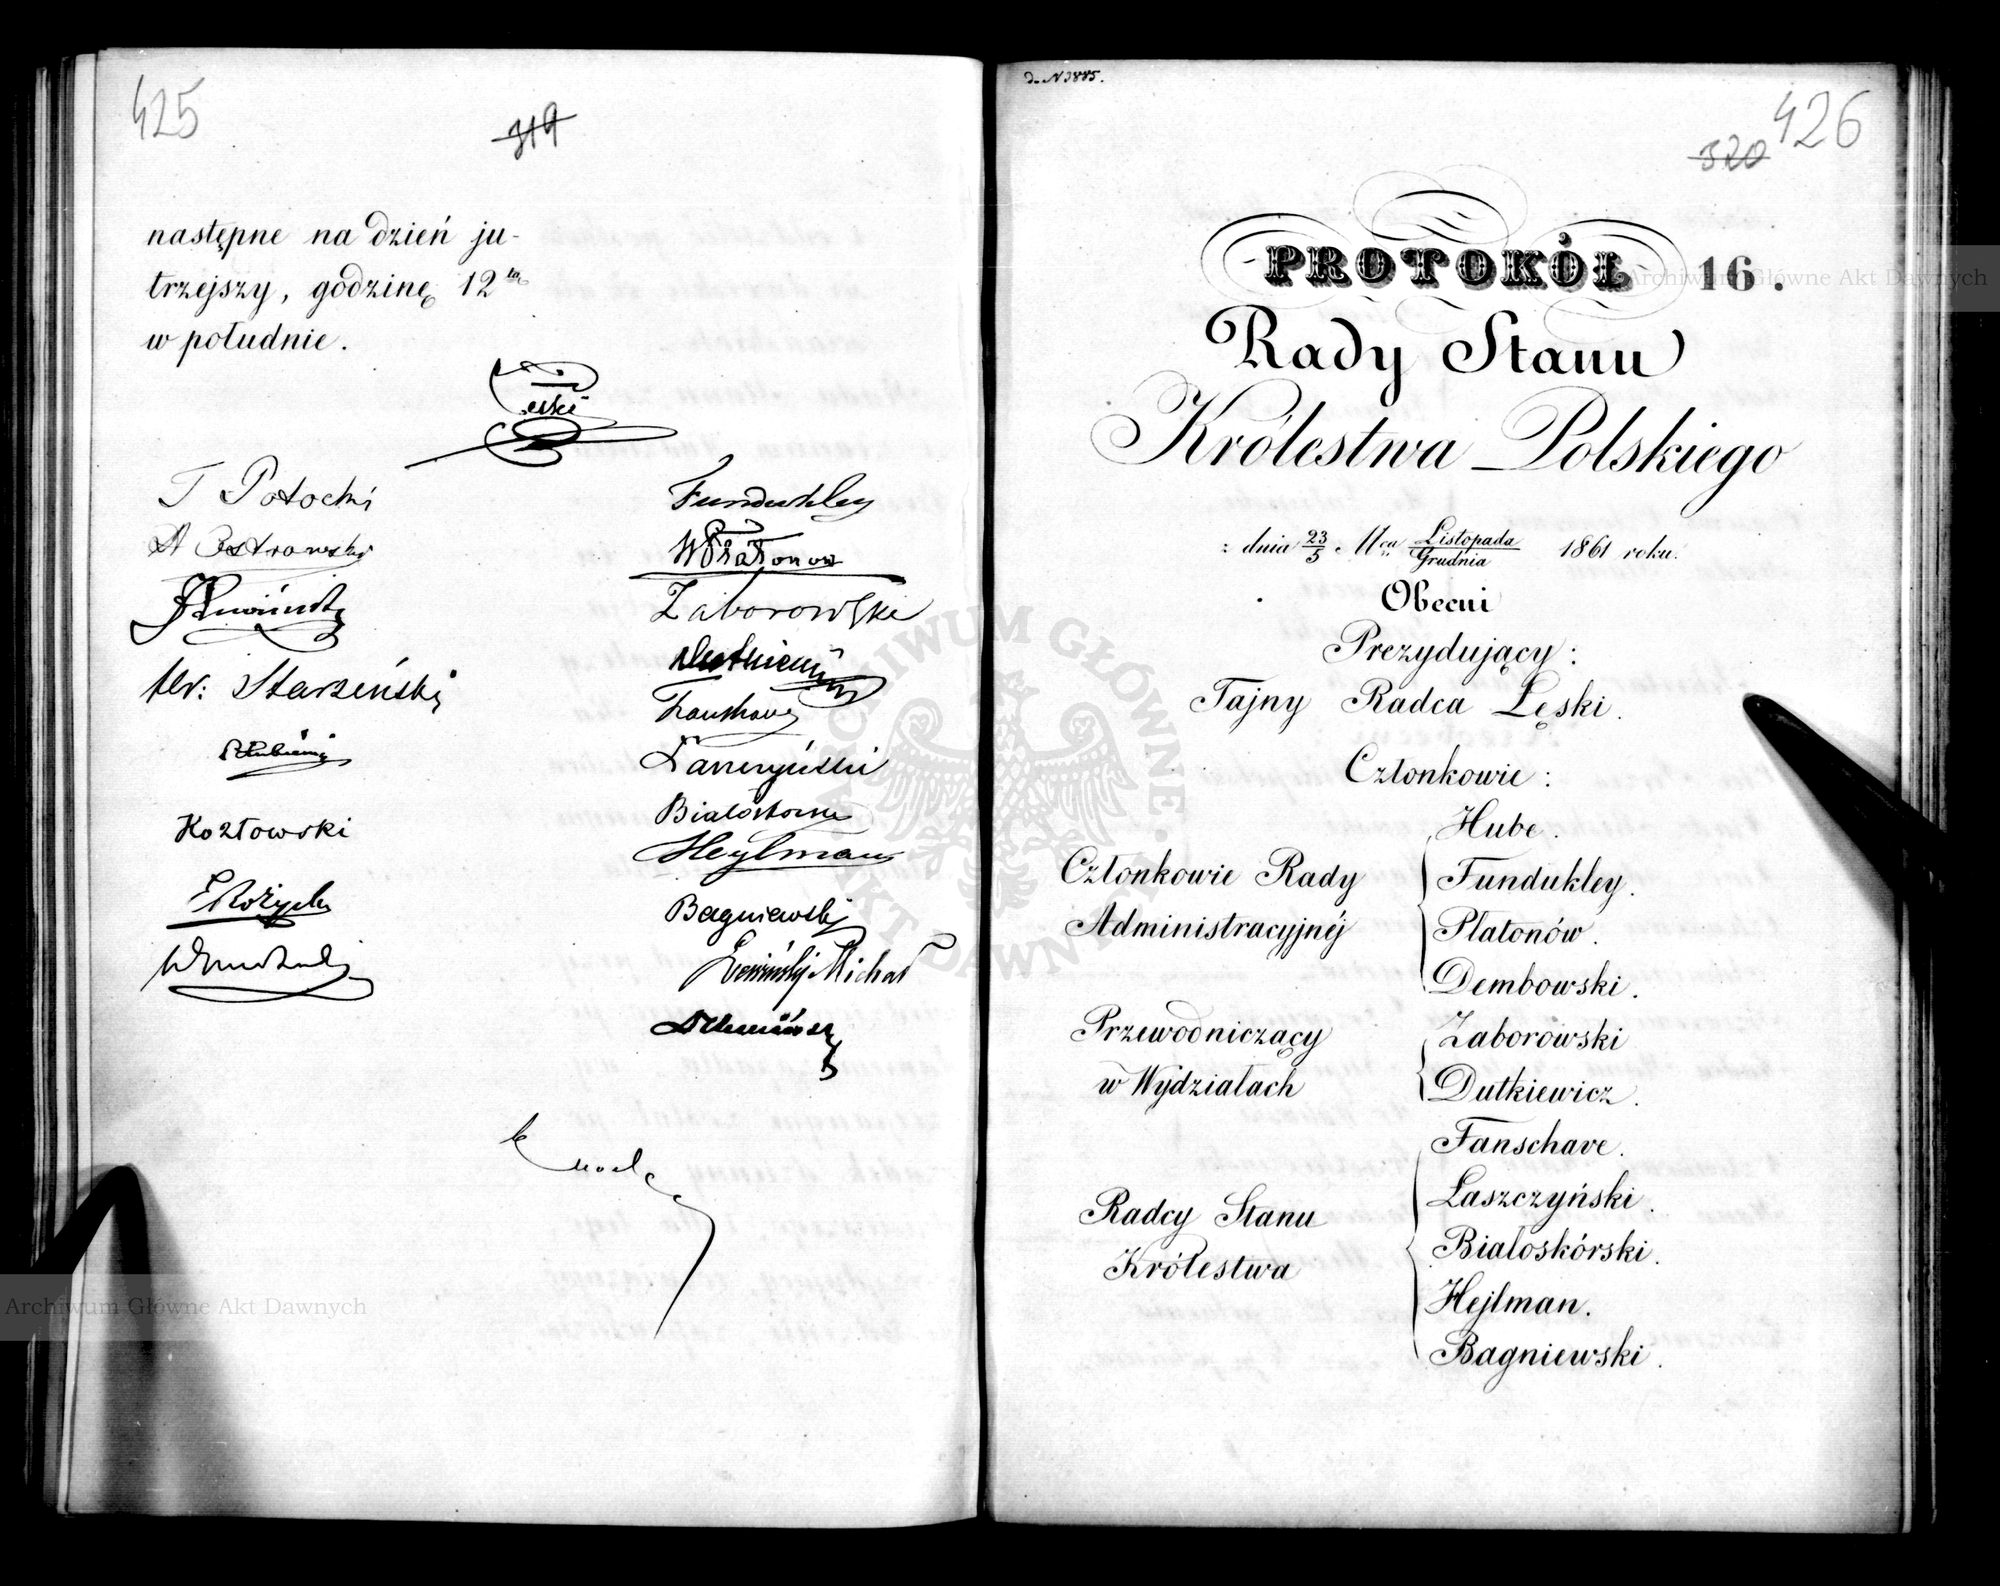 425
319
następne na dzień ju-
trzejszy, godzinę 12tą
w południe.
Łęski
T Potocki
A Ostrowski
Alr: Starzeński
Kozłowski
Fundukley
WPłatonow
Zaborowski
Dutkiewicz
Fanshave
Białoskórski
Heylman
Bagniewski
Michał
426
320
PROTOKÓŁ 16.
Rady Stanu
Królestwa Polskiego
: dnia 23/5 Mca Listopada/Grudnia 1861 roku.
Obecni
Prezydujący:
Tajny Radca Łęski.
Członkowie:
Członkowie Rady
Administracyjnéj
Hube.
Fundukley.
Płatonów.
Dembowski.
Przewodniczący
w Wydziałach
Zaborowski
Dutkiewicz.
Radcy Stanu
Królestwa
Fanschave.
Łaszczyński.
Białoskórski.
Hejlman.
Bagniewski.
Archiwum Główne Akt Dawnych
Archiwum Główne Akt Dawnych
ARCHIWUM GŁÓWNE AKT DAWNYCH